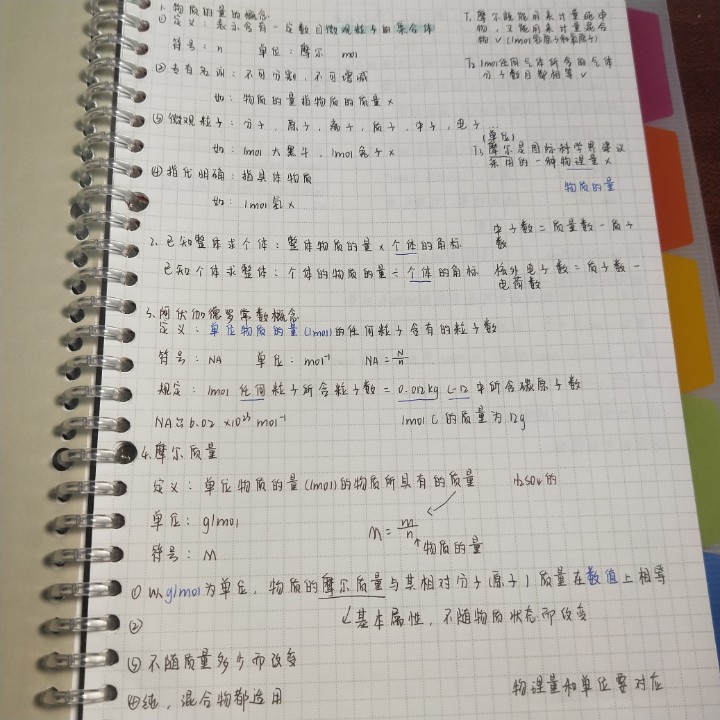 1. 物质的量的概念
① 定义：表示含有一定数目微观粒子的集合体
符号：n 单位：摩尔 mol
② 专有名词：不可分割，不可增减
如：物质的量指物质的质量×
③ 微观粒子：分子，原子，离子，质子，中子，电子...
如：1mol大黑牛，1mol兔子×
④ 指代明确：指具体物质
如：1mol氢×
T1 摩尔既能用来计量纯净
物，又能用来计量混合
物√
T2 1mol任何气体所含的气体
分子数目都相等√
(单位)
T3 摩尔是国际科学界建议
采用的一种物理量×
物质的量
2. 已知整体求个体：整体物质的量×个体的角标
已知个体求整体：个体的物质的量÷个体的角标
中子数=质量数-质子
数
核外电子数=质子数-
电荷数
3. 阿伏伽德罗常数概念
定义：单位物质的量(1mol)的任何粒子含有的粒子数
符号：NA 单位：mol⁻¹ NA=N/n
规定：1mol任何粒子所含粒子数=0.012kg C-12中所含碳原子数
NA≈6.02×10²³mol⁻¹ 1mol C的质量为12g
4. 摩尔质量
定义：单位物质的量(1mol)的物质所具有的质量 H2SO4的
单位：g/mol
M=m/n
物质的量
符号：M
① 以g/mol为单位，物质的摩尔质量与其相对分子(原子)质量在数值上相等
基本属性，不随物质状态而改变
②
③ 不随质量多少而改变
④ 纯，混合物都适用
物理量和单位要对应